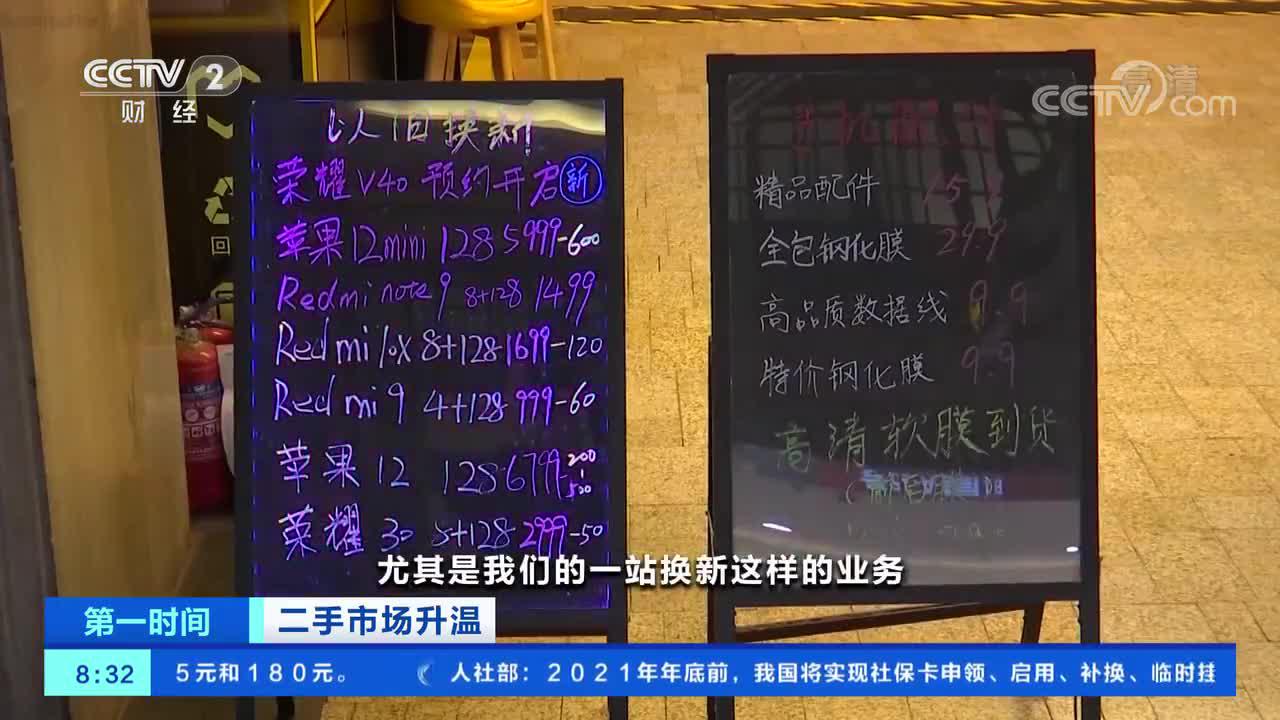 CCTV 2
财经
高清
CCTV.com
回
以旧换新!
荣耀 V40 预约开启 新
苹果12mini 128 5999-600
Redmi note 9 8+128 1499
Redmi 10X 8+128 1699-120
Redmi 9 4+128 999-60
苹果 12 128 6799-200
500
荣耀 30 8+128 2999-50
精品配件 15.9
全包钢化膜 29.9
高品质数据线 9.9
特价钢化膜 9.9
高清软膜到货
尤其是我们的一站换新这样的业务
第一时间
二手市场升温
8:32
5元和180元。
人社部：2021年年底前，我国将实现社保卡申领、启用、补换、临时挂